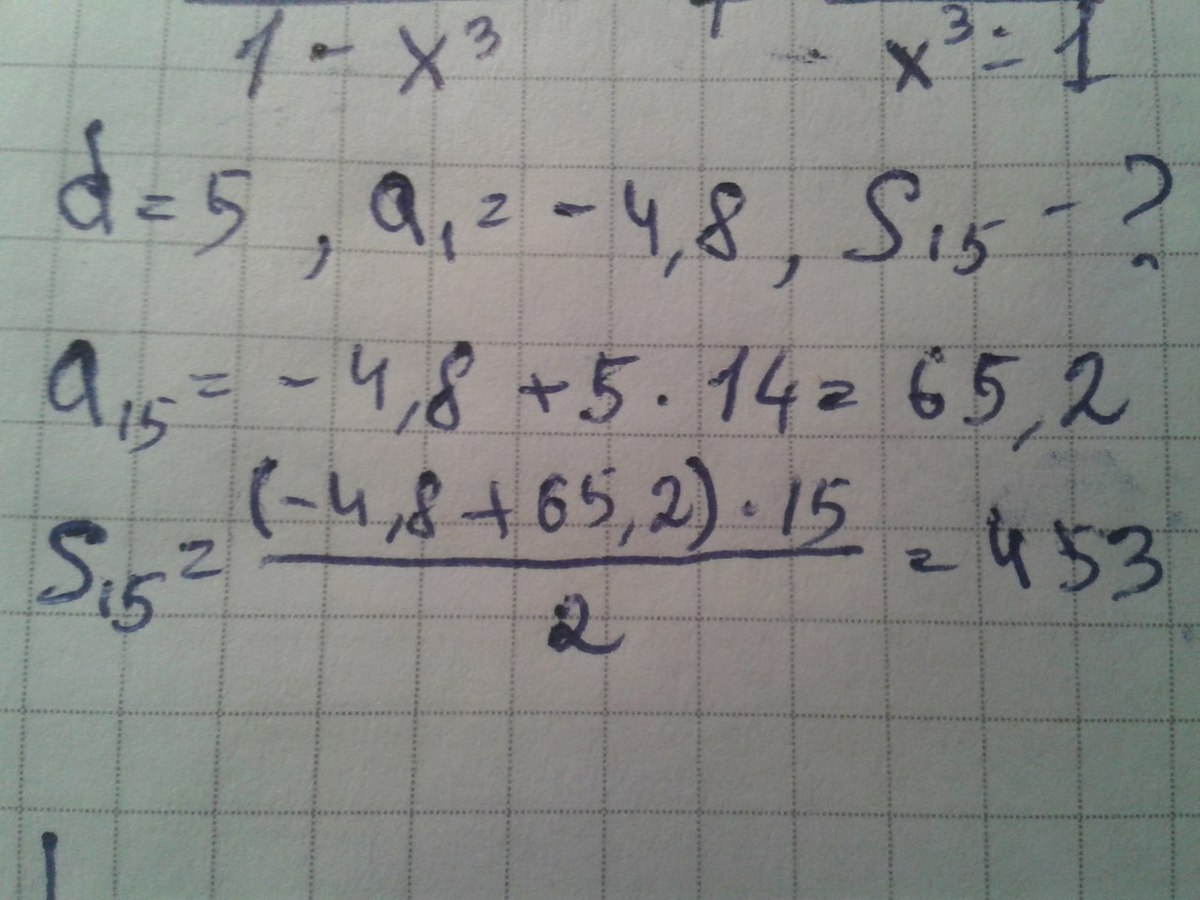 1 - x³ - x³ = 1
d = 5 , a₁ = -4,8 , S₁₅ - ?
a₁₅ = -4,8 + 5 · 14 = 65,2
(-4,8 + 65,2) · 15
S₁₅ = = 453
2